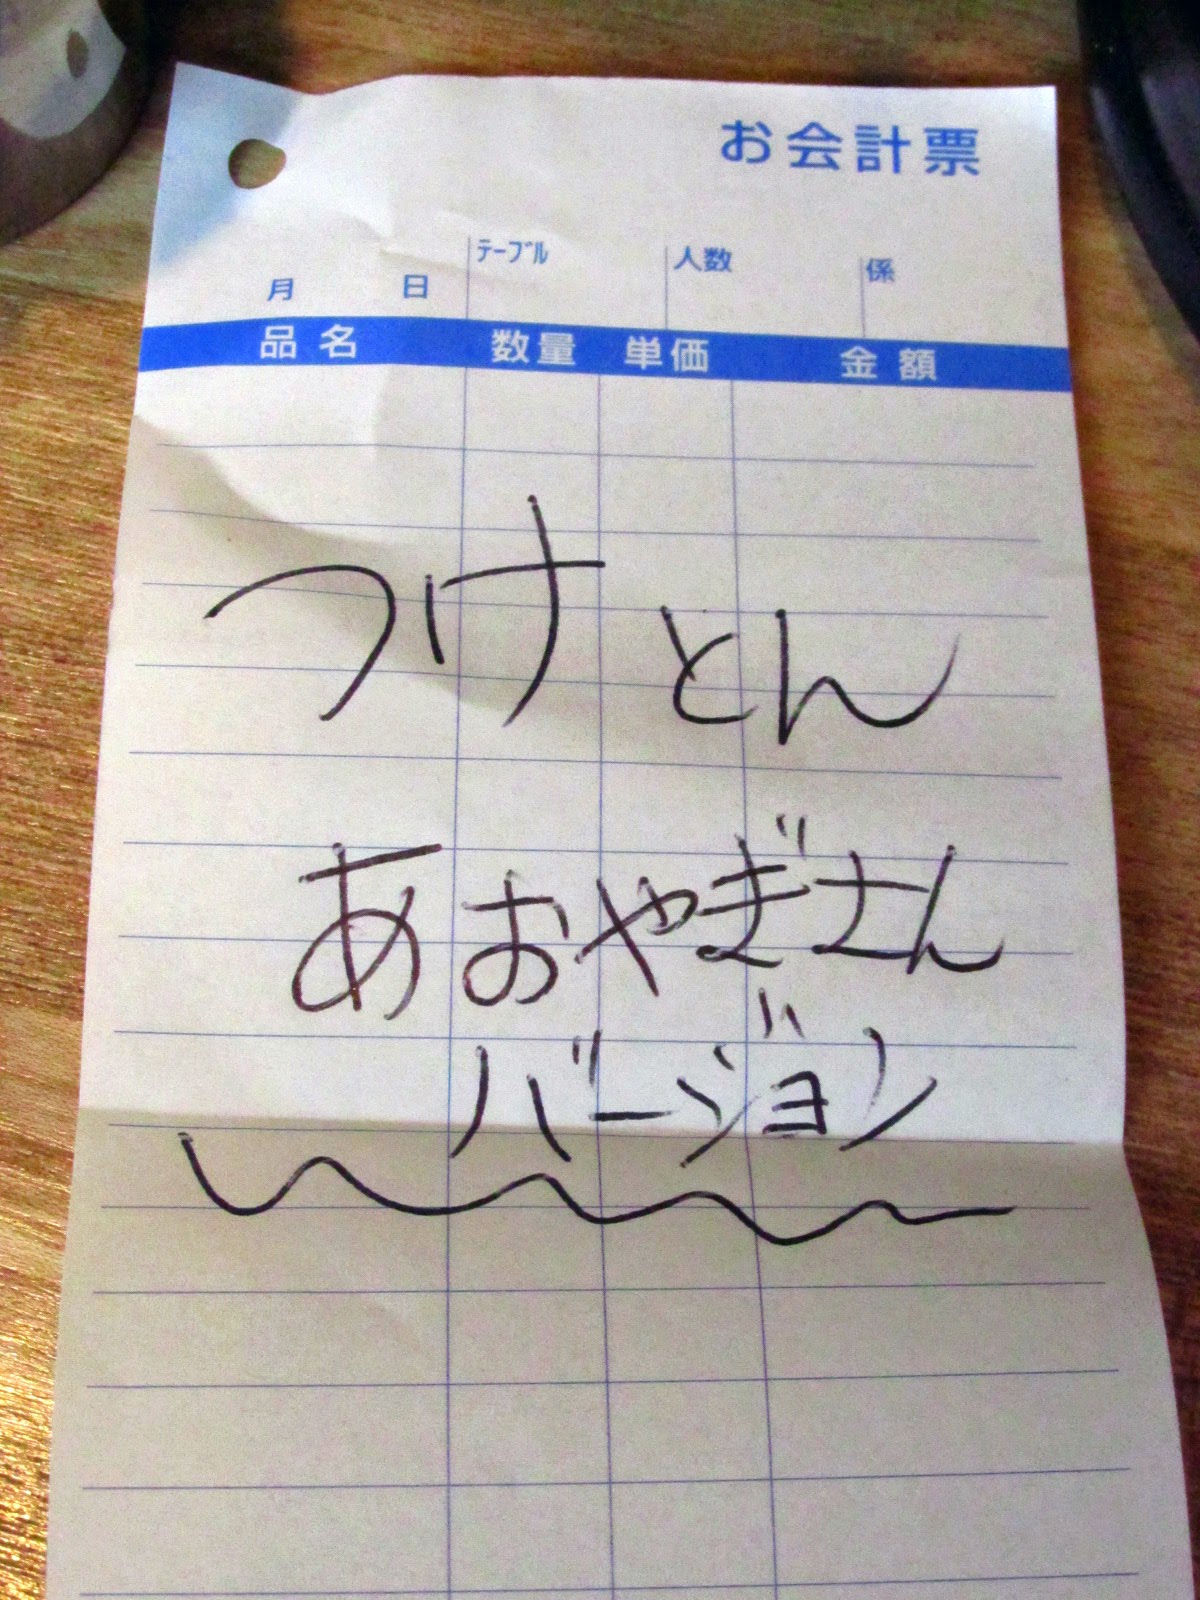 お会計票
月 日 ﾃｰﾌﾞﾙ 人数 係
品名 数量 単価 金額
つけとん
あおやぎさん
バージョン